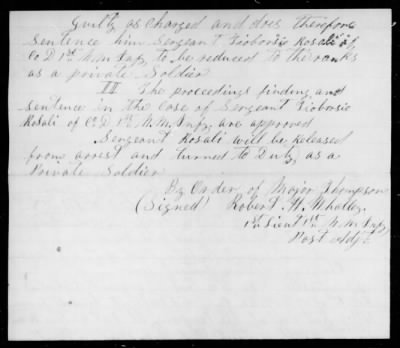 Guilty as charged and does therefore
Sentence him Sergeant Tioborsio Rosali of
Co D 1st N.M. Infy, to be reduced to the ranks
as a private Soldier
III The proceedings finding and
sentence in the case of Sergeant Tioborsio
Rosali of Co D 1st N.M. Infy, are approved
Sergeant Rosali will be released
from arrest and turned to Duty as a
Private Soldier
By Order of Major Thompson
(Signed) Robert H. Whalley
1st Lieut 1st N.M Infy
Post Adjt